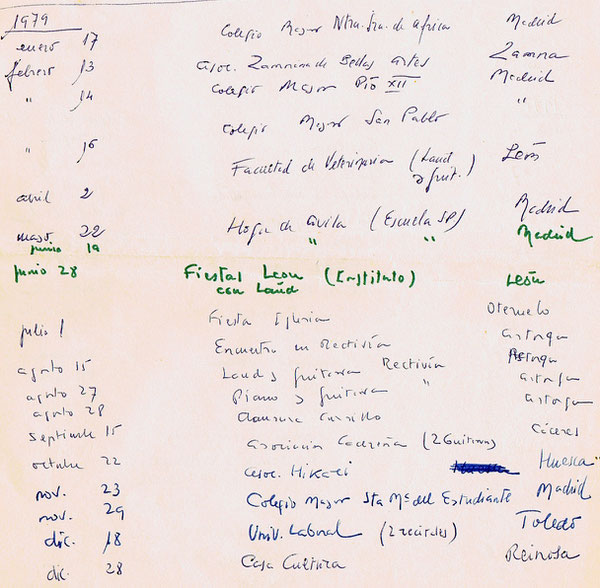 1979
enero 17 Colegio Mayor Ntra. Sra. de Africa Madrid
febrero 13 Asoc. Zamorana de Bellas Artes Zamora
" 14 Colegio Mayor Pío XII Madrid
" 16 Colegio Mayor San Pablo "
abril 2 Facultad de Veterinaria (Laud y guit.) León
mayo 22 Hogar de Avila (Escuela SP) Madrid
junio 19 " " Madrid
junio 28 Fiestas León (Instituto) León
con Laúd
julio 1 Fiesta Iglesia Oteruelo
agosto 15 Encuentro en Rectivía Astorga
agosto 27 Laud y guitarra Rectivía Astorga
agosto 28 Piano y guitarra " Astorga
septiembre 15 Clausura Cursillo Astorga
octubre 22 Asociación Cacereña (2 Guitarras) Cáceres
nov. 23 Asoc. Hikari Huesca
nov. 29 Colegio Mayor Sta Mª del Estudiante Madrid
dic. 18 Univ. Laboral (2 recitales) Toledo
dic. 28 Casa Cultura Reinosa